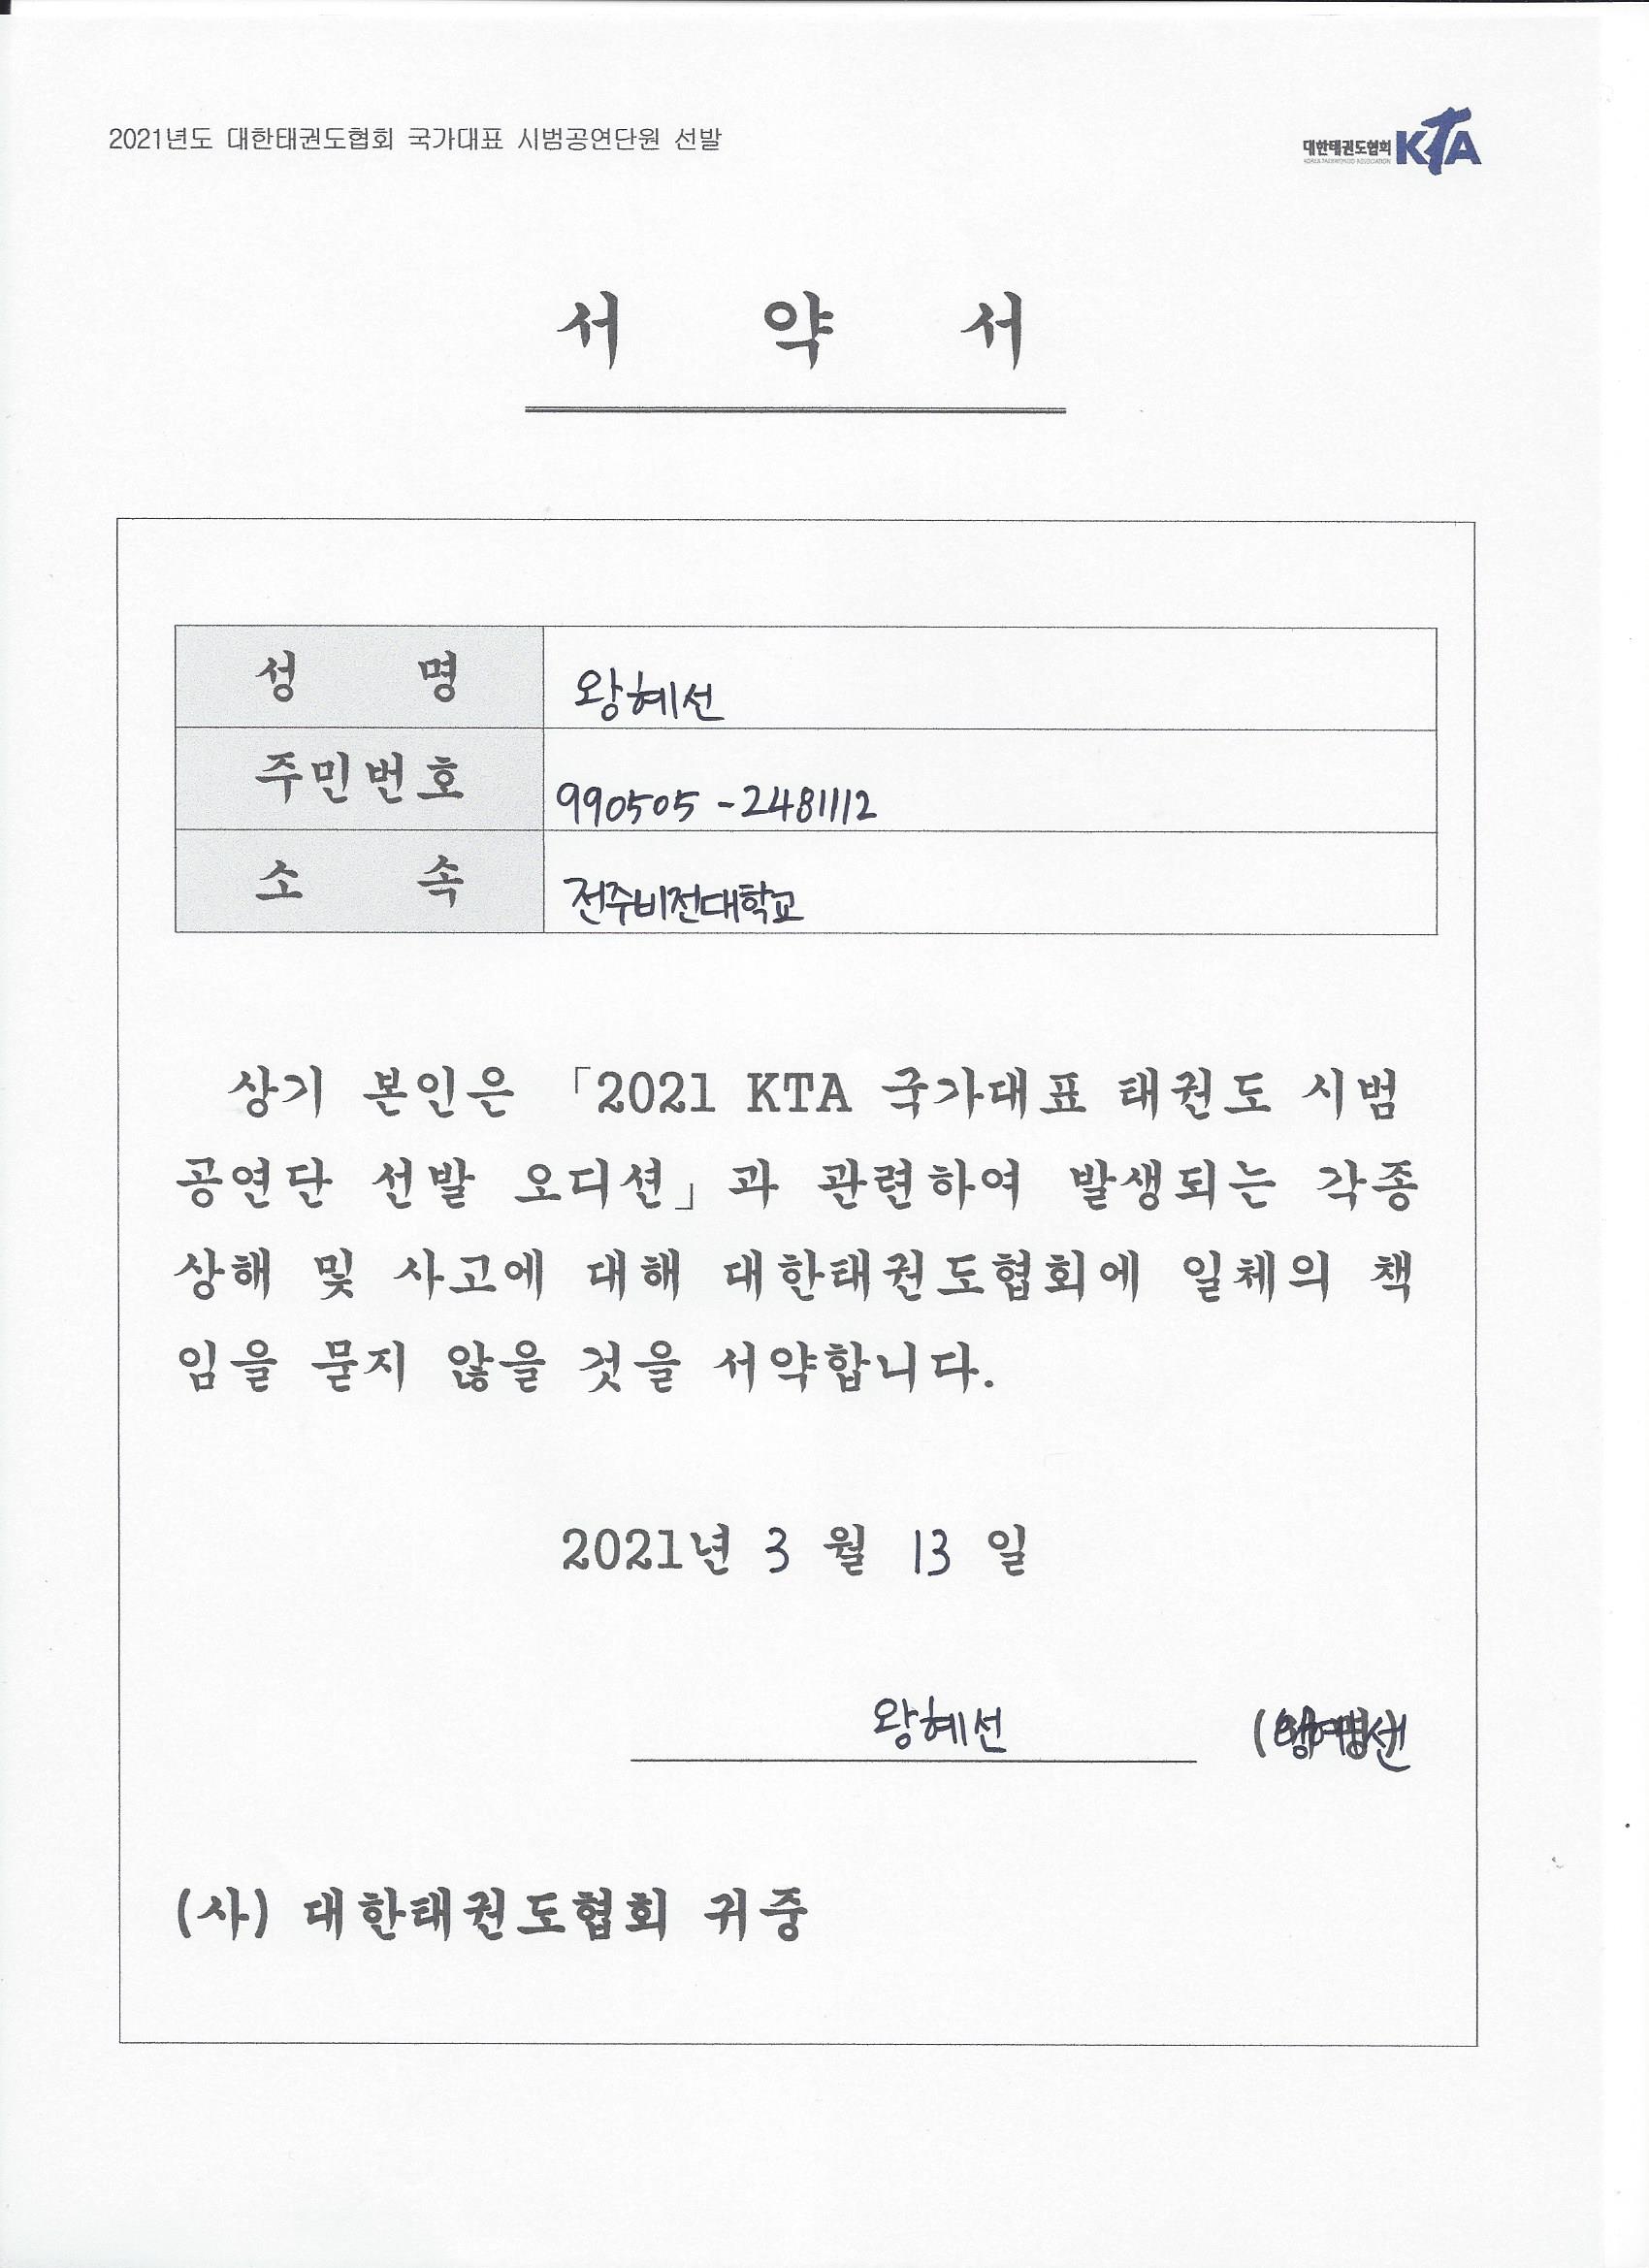 2021년도 대한태권도협회 국가대표 시범공연단원 선발
대한태권도협회 KTA
KOREA TAEKWONDO ASSOCIATION
서 약 서
성 명 왕혜선
주민번호 990505-2481112
소 속 전주비전대학교
상기 본인은 「2021 KTA 국가대표 태권도 시범
공연단 선발 오디션」과 관련하여 발생되는 각종
상해 및 사고에 대해 대한태권도협회에 일체의 책
임을 묻지 않을 것을 서약합니다.
2021년 3 월 13 일
왕혜선
(사) 대한태권도협회 귀중